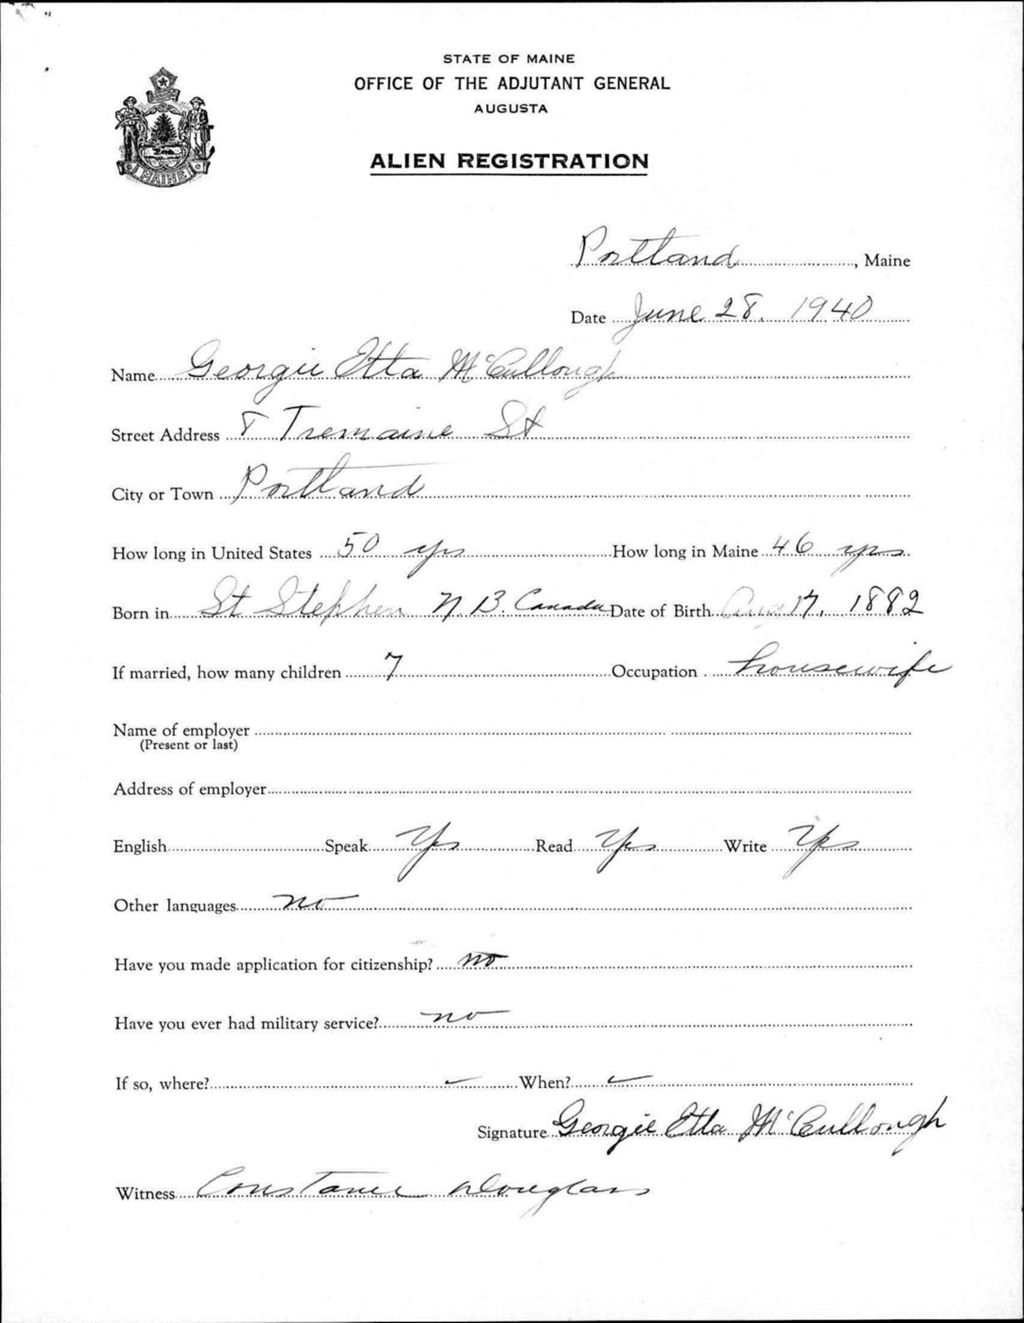 STATE OF MAINE
OFFICE OF THE ADJUTANT GENERAL
AUGUSTA
MAINE
ALIEN REGISTRATION
Portland, Maine
Date June 28, 1940
Name Georgie Etta McCullough
Street Address 8 Tremaine St
City or Town Portland
How long in United States 50 yrs How long in Maine 46 yrs
Born in St Stephen N B. Canada Date of Birth Aug 17, 1882
If married, how many children 7 Occupation housewife
Name of employer
(Present or last)
Address of employer
English Speak Yes Read Yes Write Yes
Other languages no
Have you made application for citizenship? no
Have you ever had military service? no
If so, where? When?
Signature Georgie Etta McCullough
Witness Constance Douglass